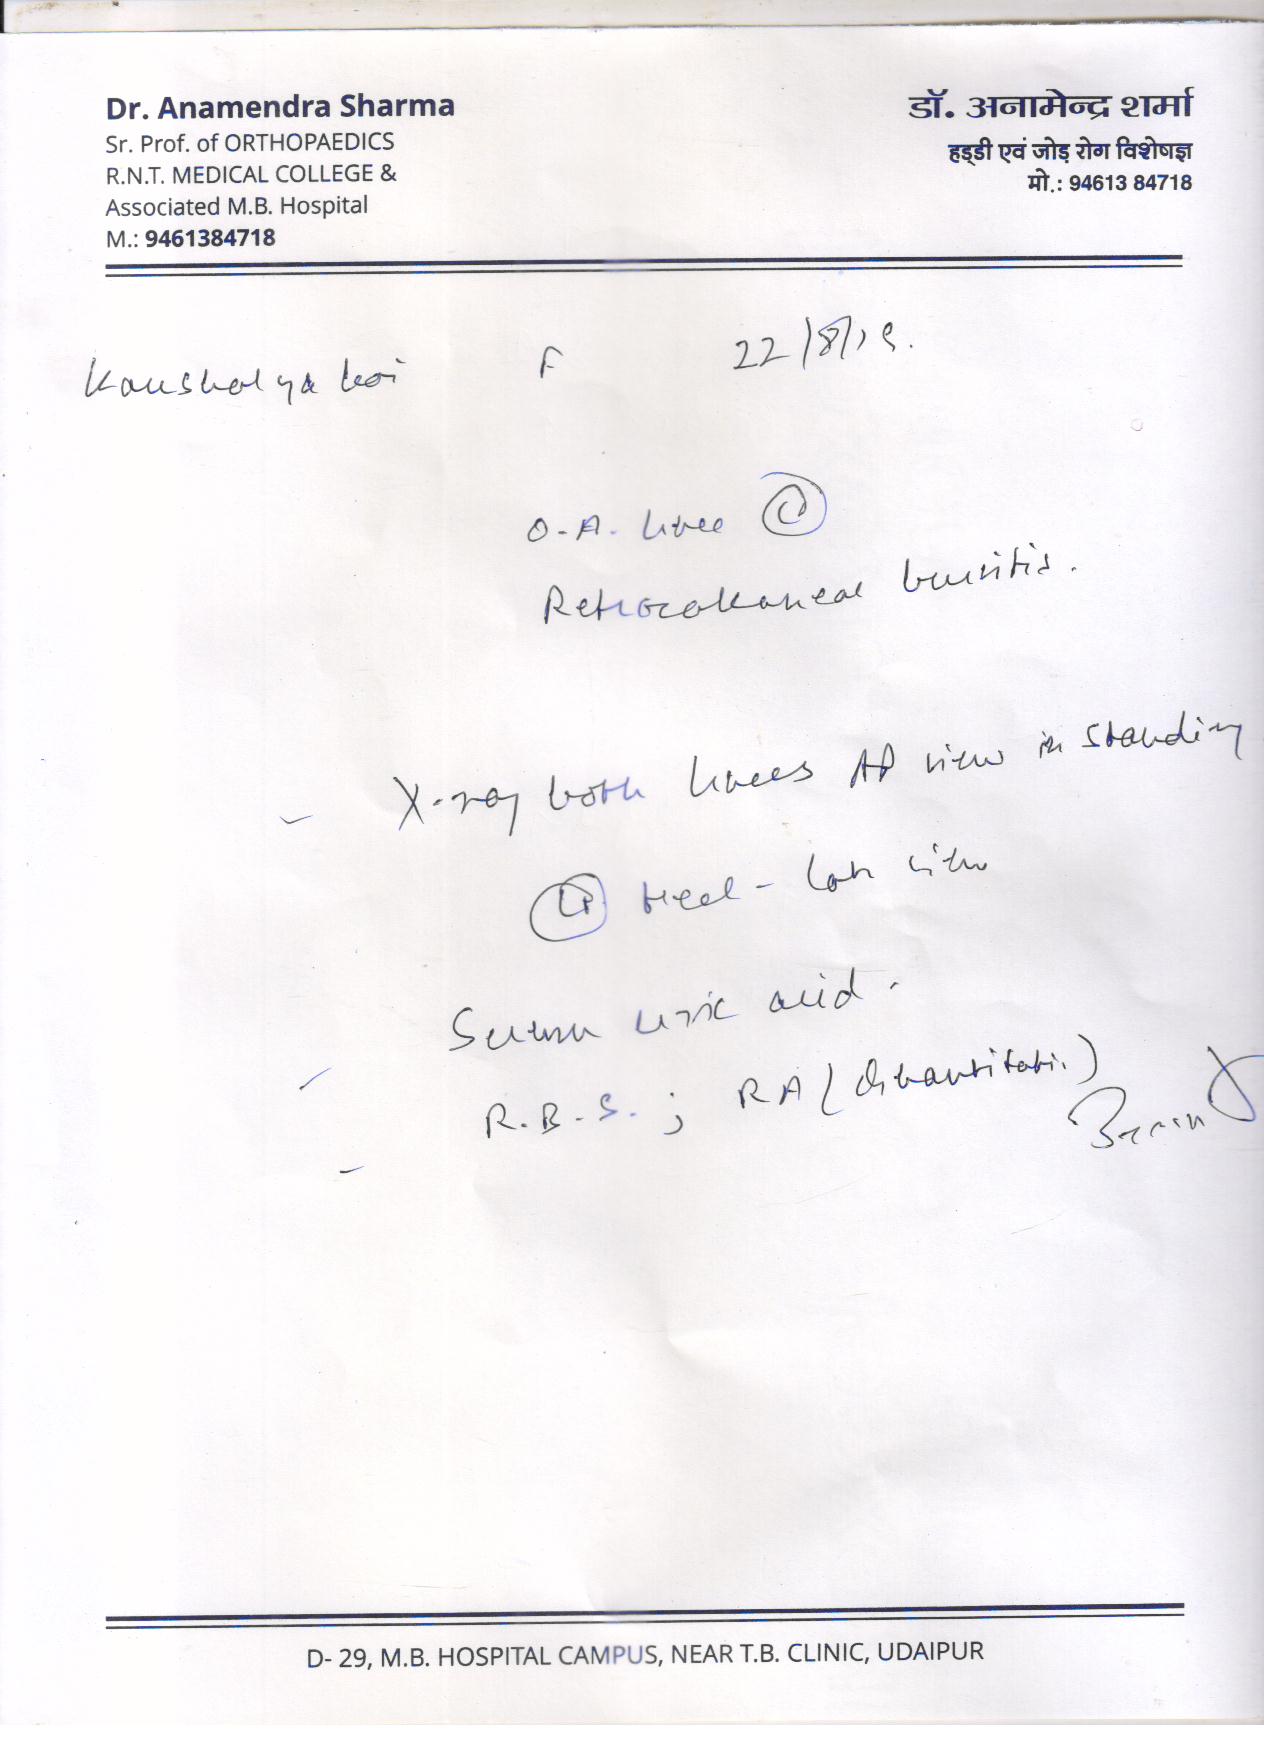 Dr. Anamendra Sharma
Sr. Prof. of ORTHOPAEDICS
R.N.T. MEDICAL COLLEGE &
Associated M.B. Hospital
M.: 9461384718
डॉ. अनामेन्द्र शर्मा
हड्डी एवं जोड़ रोग विशेषज्ञ
मो.: 94613 84718
Kaushalya bai F 22/8/19.
O.A. knee
Retrocalcaneal bursitis.
X-ray both knees AP view in standing
Heel - Lat view
Serum uric acid.
R.B.S. ; RA (Quantitati.)
D- 29, M.B. HOSPITAL CAMPUS, NEAR T.B. CLINIC, UDAIPUR